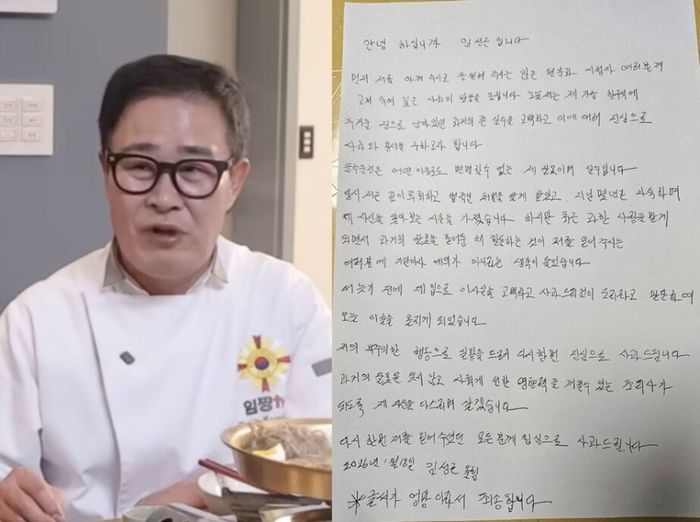 임짱
안녕 하십니까 임성근 입니다
먼저 저를 아껴 주시고 응원해 주시는 많은 팬분과 시청자 여러분께
고개 숙여 깊은 사죄의 말씀을 드립니다 오늘 저는 제 가슴 한구석에
무거운 짐으로 남아있던 과거의 큰 실수를 고백하고 이에 대해 진심으로
사죄와 용서를 구하고자 합니다
음주운전은 어떤 이유로도 변명할수 없는 제 잘못이며 실수입니다
당시 저는 깊이 후회하고 법적인 처벌을 받게 받았고, 지난 몇년간 자숙하며
제 자신을 돌아보는 시간을 가졌습니다 하지만 최근 과한 사랑을 받게
되면서 과거의 잘못을 묻어둔 채 활동하는 것이 저를 믿어 주시는
여러분에 기만이자 예의가 아니라는 생각이 들었습니다
더 늦기 전에 제 입으로 이사실을 고백하고 사과드리것이 도리라고 판단하여
오늘 이글을 올리게 되었습니다
저의 부주의한 행동으로 실망을 드려 다시한번 진심으로 사과드립니다
과거의 잘못을 잊지 않고 사회에 선한 영향력을 끼칠수 있는 조리사가
되도록 제 자신을 다스리며 살겠습니다
다시 한번 저를 믿어 주셨던 모든 분께 진심으로 사과드립니다
2026년 1월18일 임성근 올림
※글씨가 엉망이라서 죄송합니다